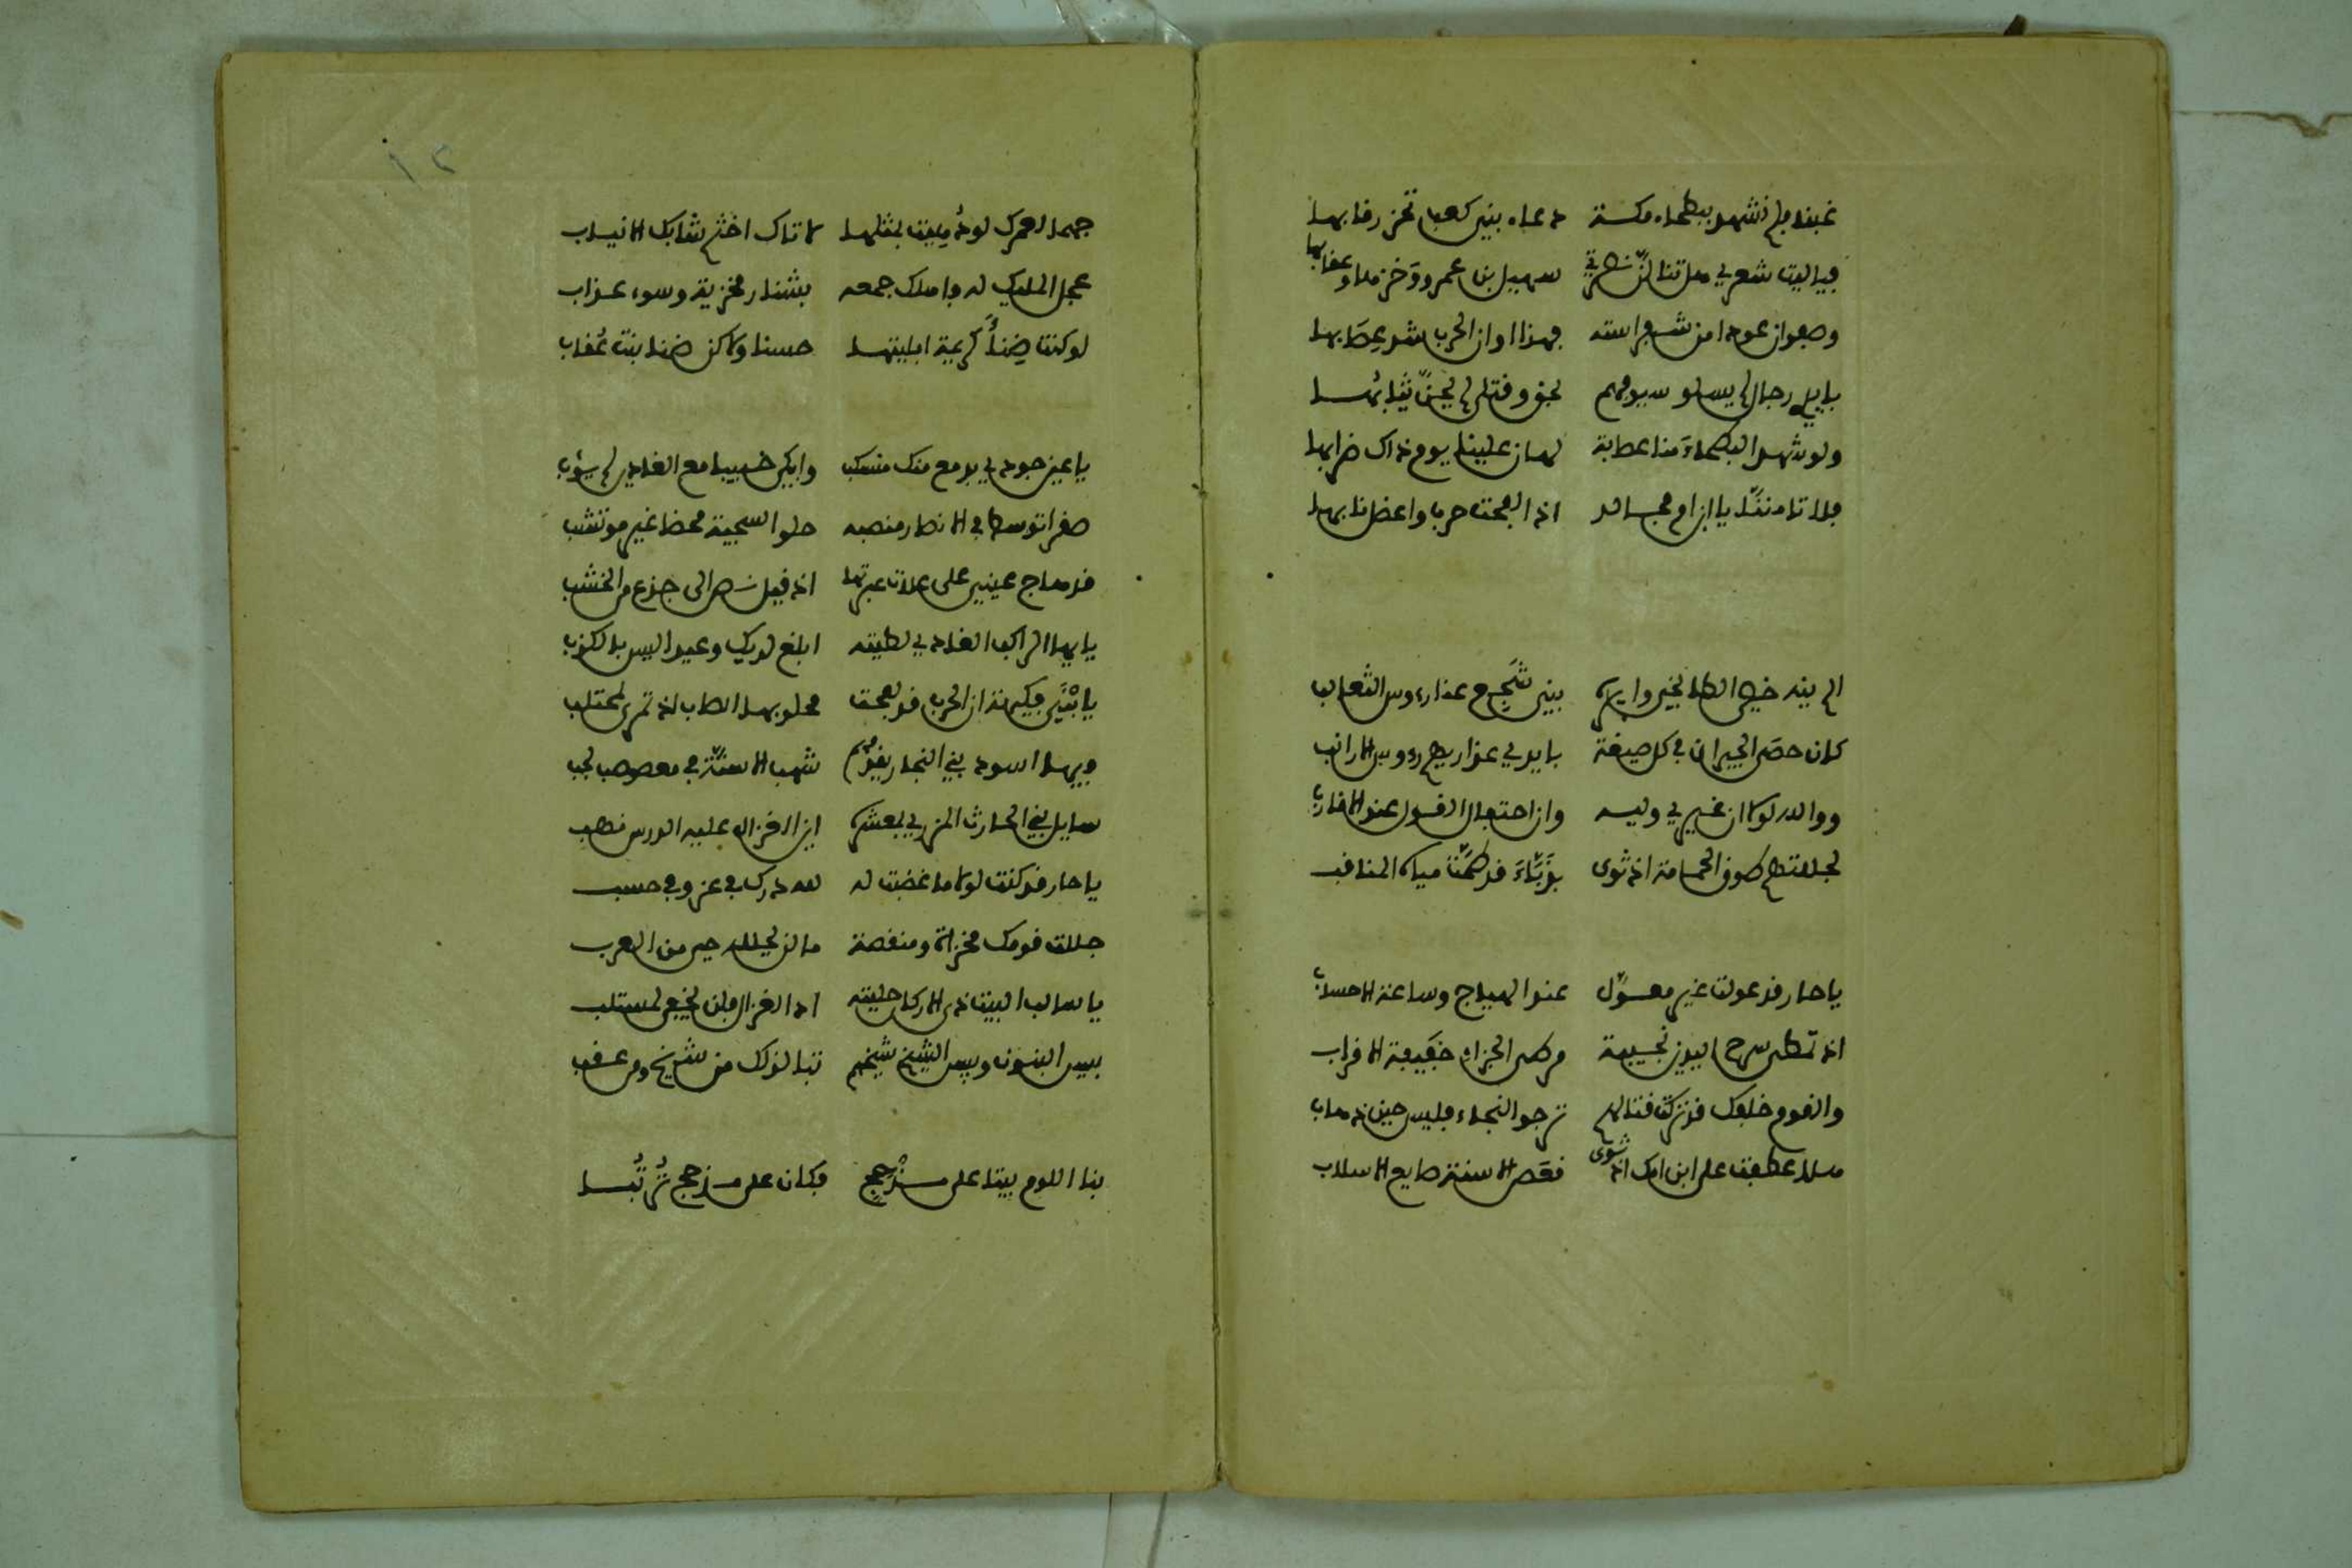 غبنا فلم نشهد ببطحاء مكة دعاء بني كعب تحز رقابها
فيا ليت شعري هل تنالنّ نصرتي سهيل بن عمرو وَخزها وعقابها
وصفوان عودا من شفر استه فهذا اوان الحرب شد عِصَابها
بايدي رجال لم يسلو سيوفهم بحق وقتلى لم تُجنّ ثيابُها
ولو شهد البطحاءَ منا عصابة لهان علينا يوم ذاك ضرابها
فلا تامننّا يا ابن ام مجالد اذا لقحت حرب واعصل نابها
كان حصَى الجيران في كل صيفة
يا حار قد عولت غير معوّل عند الهياج وساعة الاحساب
اذ تمتطي سرح اليدين نجيبة مرطى الجراء خفيفة الاقراب
والقوم خلفك قد تركت قتالهم ترجو النجاء فليس حين ذهاب
هلا عطفت على ابن امك اذ ثوى قعَص الاسنة ضايع الاسلاب
١٢
جهما لعمرك لو دُهيت بمثلها لاتاك اخثم شابك الانياب
عجل المليك له فاهلك جمعه بشنار مخزية وسوء عذاب
لو كنت ضِنأَ كريمة ابليتها حسنا ولاكن ضنا بنت عُقاب
يا عين جودي بدمع منك منسكب وابكي خبيبا مع الغادين لم يؤب
صقرا توسط في الانصار منصبه حلو السجية محضا غير موتشب
قد هاج عيني على علات عبرتها اذ قيل نص الى جذع من الخشب
يايها الراكب الغادي لطيته ابلغ لديك وعيدا ليس بالكذب
يا بْنَي فكيهة ان الحرب قد لقحت محلوبها الصاب اذ تمرى لمحتلب
فيها اسود بني النجار يقدُمهم شهب الاسنّة في معصوصب لجب
سايل بني الحارث المزري بمعشره اين الغزال عليه الدر من ذهب
يا حار قد كنت لولا ما غضبت له لله درك في عز وفي حسب
جللت قومك مخزاة ومنقصة ما لن يجلله حي من العرب
يا سالب البيت ذي الاركان حليته اد الغزال فلن يخفى لمستلب
بيس البنون وبيس الشيخ شيخهم تبا لذلك من شيخ ومن عقب
بنا اللوم بيتا على مذْحِجٍ فكان على مذحج تُرتُبا